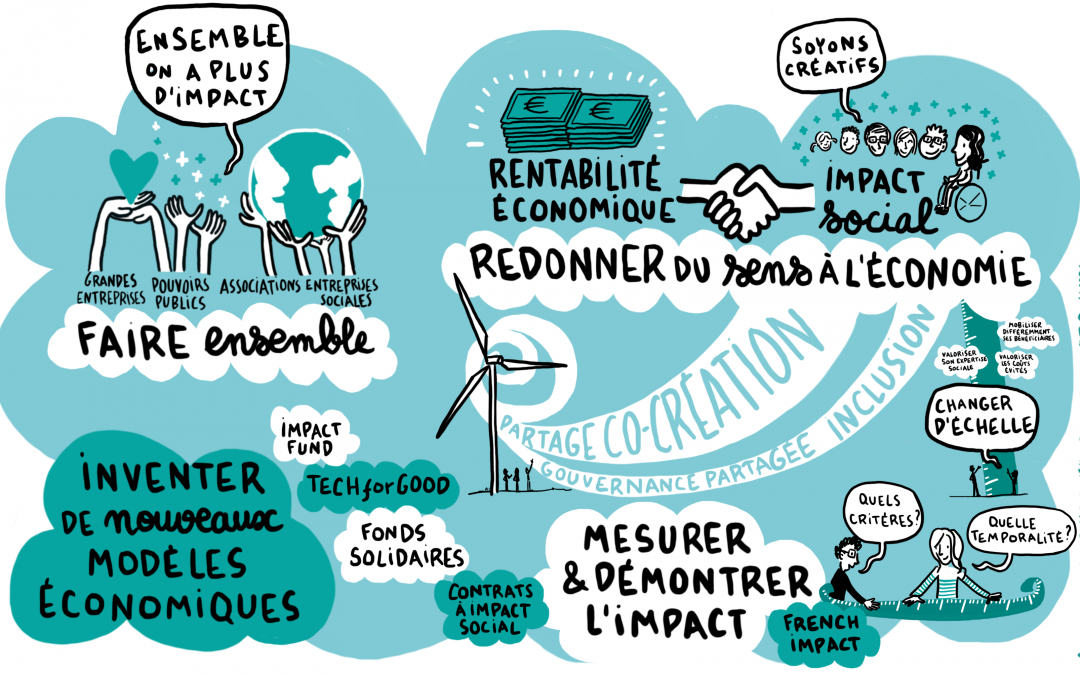 ENSEMBLE
ON A PLUS
D'IMPACT
GRANDES
ENTREPRISES
POUVOIRS
PUBLICS
ASSOCIATIONS
ENTREPRISES
SOCIALES
FAIRE ensemble
SOYONS
CRÉATIFS
€
€
RENTABILITÉ
ÉCONOMIQUE
IMPACT
social
REDONNER DU sens À L'ÉCONOMIE
PARTAGE CO-CRÉATION
GOUVERNANCE PARTAGÉE INCLUSION
MOBILISER
DIFFÉREMMENT
SES BÉNÉFICIAIRES
VALORISER
SON EXPERTISE
SOCIALE
VALORISER
LES COÛTS
ÉVITÉS
CHANGER
D'ÉCHELLE
INVENTER
DE nouveaux
MODÈLES
ÉCONOMIQUES
IMPACT
FUND
TECH for GOOD
FONDS
SOLIDAIRES
CONTRATS
À IMPACT
SOCIAL
MESURER
& DÉMONTRER
L'IMPACT
QUELS
CRITÉRES?
QUELLE
TEMPORALITÉ?
FRENCH
IMPACT